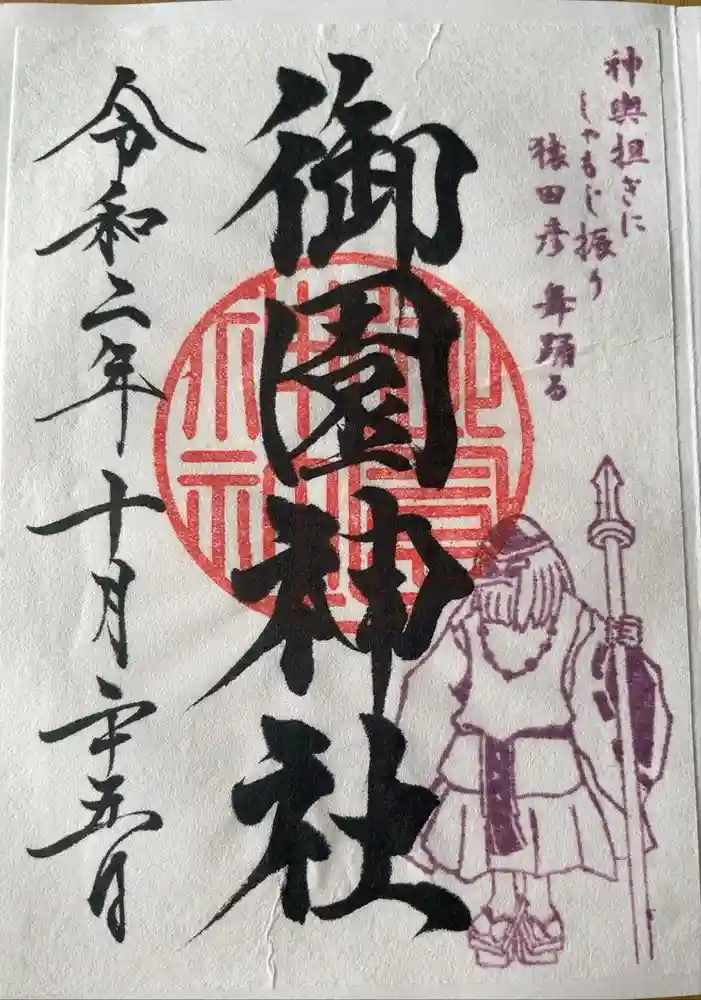 神輿担ぎに
しゃもじ振り
猿田彦 舞踊る
御園神社
令和二年十月二十五日